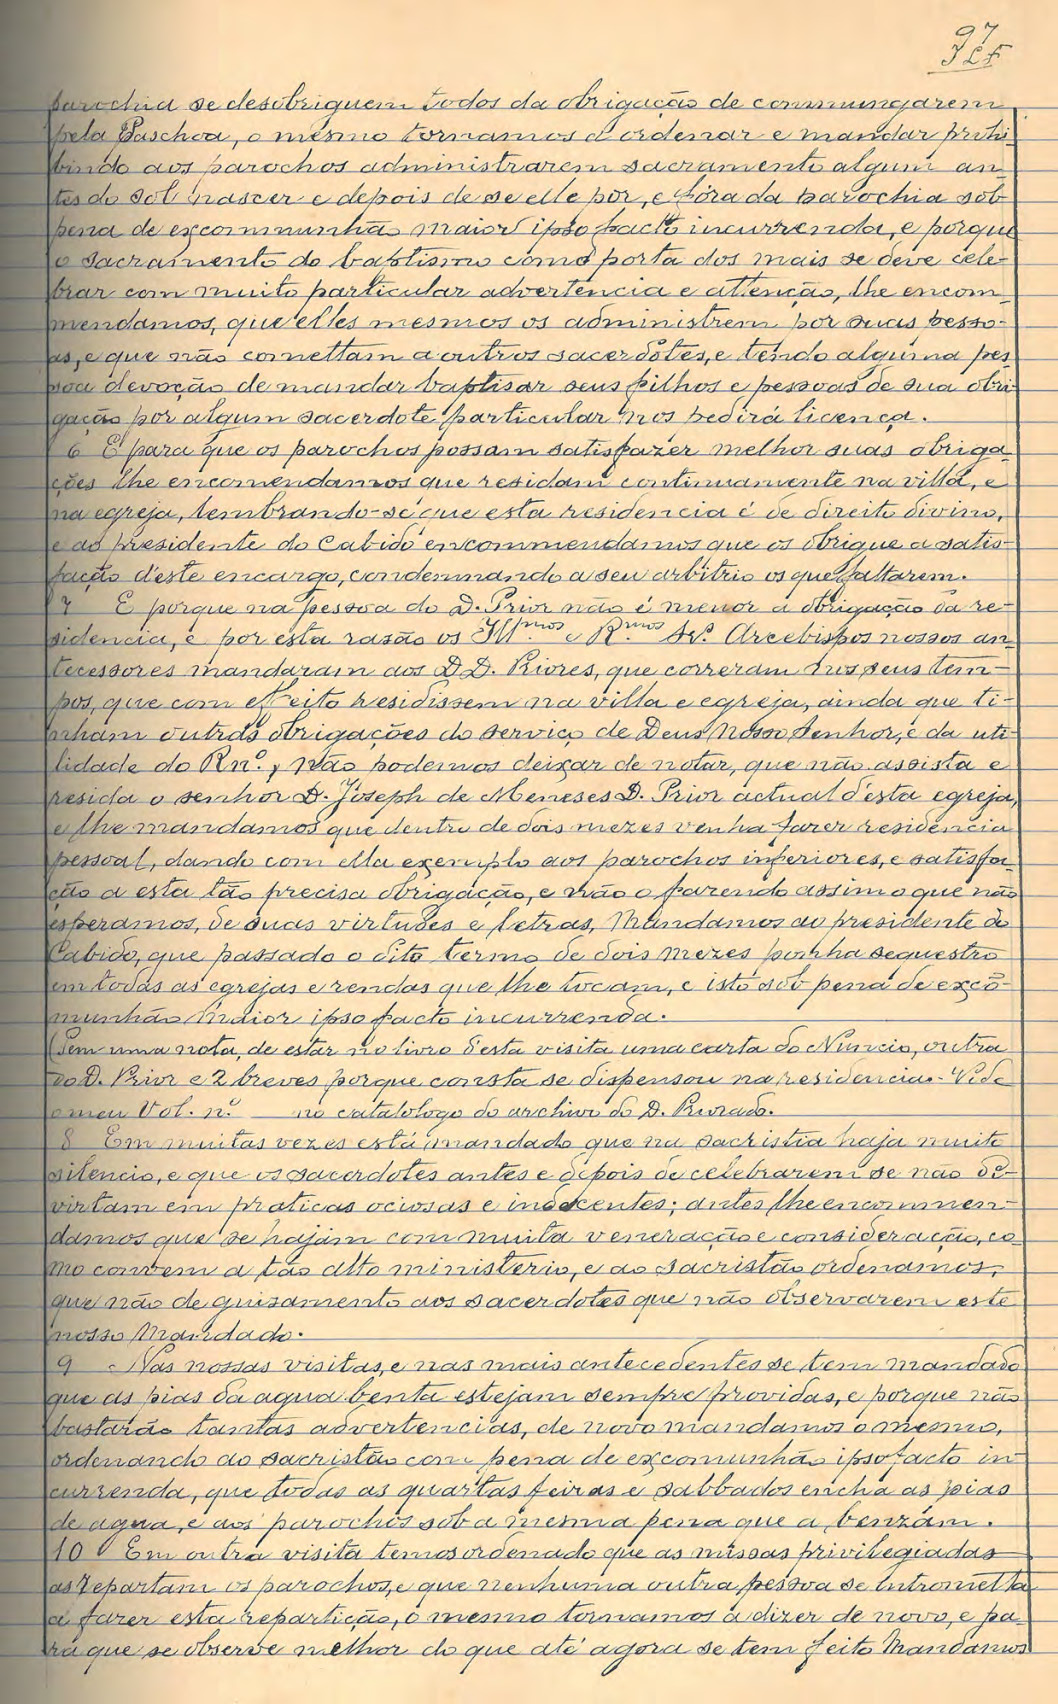 97
parochia se desobriguem todos da obrigação de commungarem
pela Paschoa, o mesmo tornamos a ordenar e mandar prohi-
bindo aos parochos administrarem sacramento algum an-
tes do sol nascer e depois de se elle pôr, e fóra da parochia sob
pena de excommunhão maior ipso facto incurrenda, e porque
o sacramento do baptismo como porta dos mais se deve cele-
brar com muito particular advertencia e attenção, lhe encom-
mendamos, que elles mesmos os administrem por suas pesso-
as, e que não comettam a outros sacerdotes, e tendo alguma pes-
soa devoção de mandar baptisar seus filhos e pessoas de sua obri-
gação por algum sacerdote particular nos pedirá licença.
6 E para que os parochos possam satisfazer melhor suas obriga-
ções lhe encomendamos que residam continuamente na villa, e
na egreja, lembrando-se que esta residencia é de direito divino,
e ao presidente do Cabido encommendamos que os obrigue a satis-
fação d'este encargo, condemnando a seu arbitrio os que faltarem.
7 E porque na pessoa do D. Prior não é menor a obrigação da re-
sidencia, e por esta rasão os Ill.mos e R.mos Sr.s Arcebispos nossos an-
tecessores mandaram aos D D. Priores, que correram nos seus tem-
pos, que com effeito residissem na villa e egreja, ainda que ti-
nham outras obrigações do serviço de Deus Nosso Senhor, e da uti-
lidade do Rn.º, não podemos deixar de notar, que não assista e
resida o senhor D. Joseph de Meneses D. Prior actual d'esta egreja,
e lhe mandamos que dentro de dois mezes venha fazer residencia
pessoal, dando com ella exemplo aos parochos inferiores, e satisfa-
ção a esta tão precisa obrigação, e não o fazendo assim o que não
esperamos, de suas virtudes e letras, Mandamos ao presidente do
Cabido, que passado o dito termo de dois mezes ponha sequestro
em todas as egrejas e rendas que lhe tocam, e isto sob pena de excõ-
munhão maior ipso facto incurrenda.
(Tem uma nota, de estar no livro d'esta visita uma carta do Nuncio, outra
do D. Prior e 2 breves porque consta se dispensou na residencia. Vide
o meu Vol. n.º ___ no catalologo do archivo do D. Priorado.
8 Em muitas vezes está mandado que na sacristia haja muito
silencio, e que os sacerdotes antes e depois de celebrarem se não de-
virtam em praticas ociosas e indecentes; antes lhe encommen-
damos que se hajam com muita veneração e consideração, co-
mo convem a tão alto ministerio, e ao sacristão ordenamos,
que não de guizamento aos sacerdotes que não observarem este
nosso Mandado.
9 Nas nossas visitas, e nas mais antecedentes se tem mandado
que as pias da agua benta estejam sempre providas, e porque não
bastarão tantas advertencias, de novo mandamos o mesmo,
ordenando ao sacristão com pena de excomunhão ipso facto in-
currenda, que todas as quartas feiras e sabbados encha as pias
de agua, e aos parochos sob a mesma pena que a benzam.
10 Em outra visita temos ordenado que as missas privilegiadas
as repartam os parochos, e que nenhuma outra pessoa se intrometta
a fazer esta repartição, o mesmo tornamos a dizer de novo, e pa-
ra que se observe melhor do que até agora se tem feito Mandamos